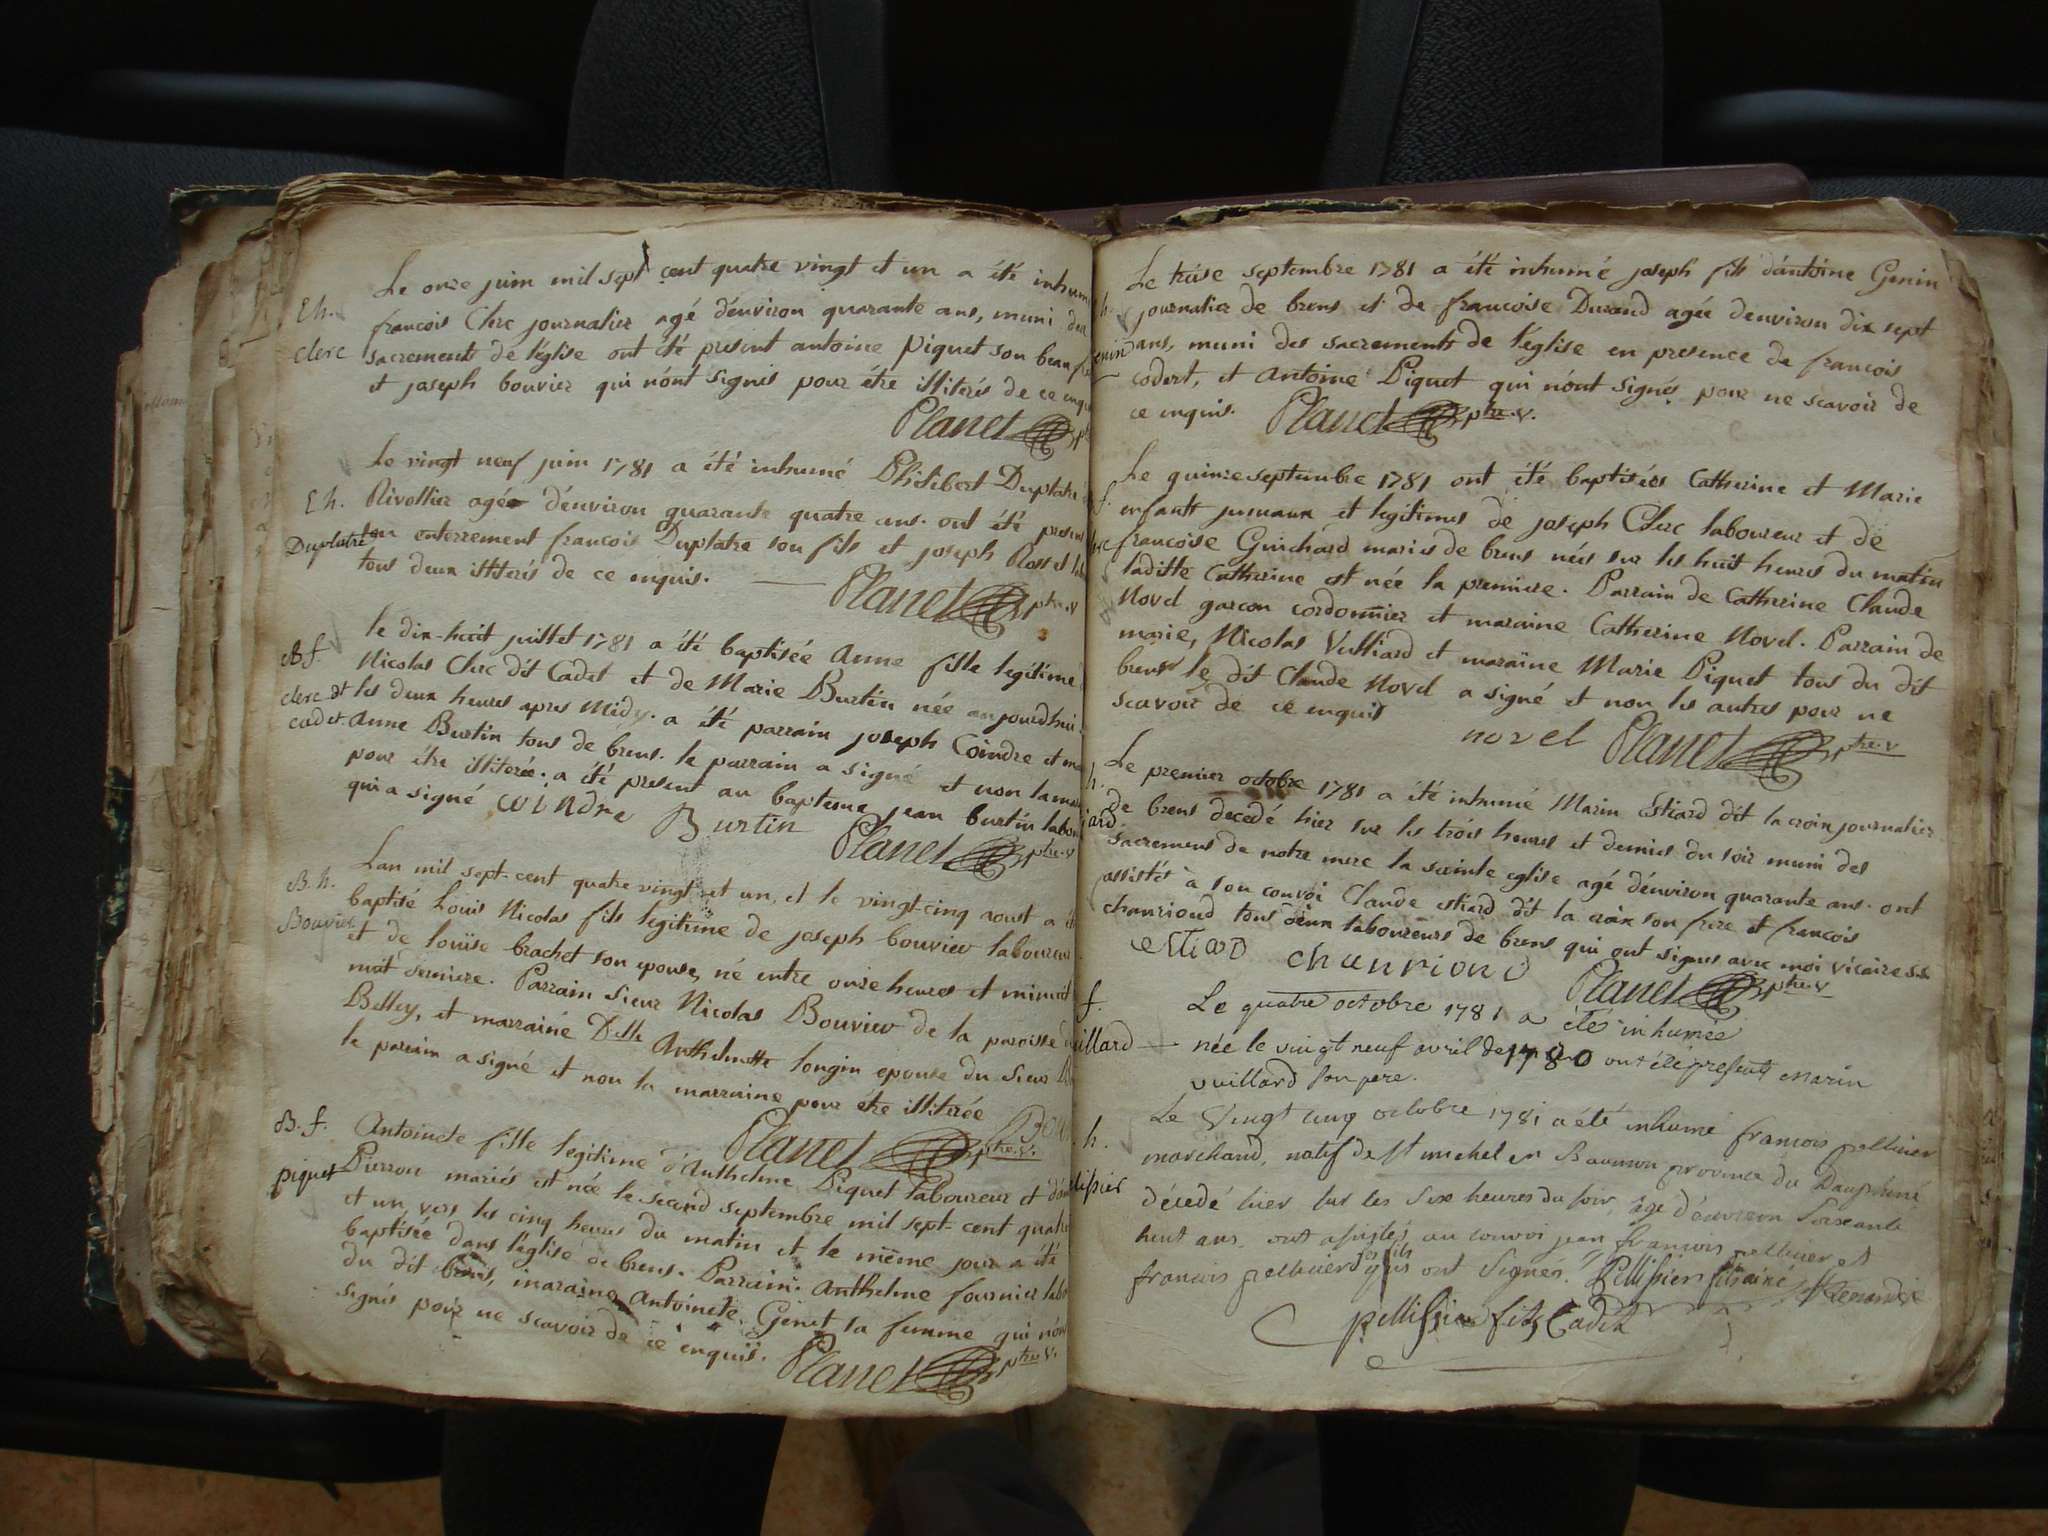 Le onze juin mil sept cent quatre vingt et un a été inhum
Eh. francois Clerc journalier agé d'environ quarante ans, muni des
clerc sacrements de l'église ont été present antoine piquet son beau f
et joseph bouvier qui n'ont signés pour être illiterés de ce enqu
Planet
Le vingt neuf juin 1781 a été inhumé Philibert Duplatre
Eh. Rivollier agé d'environ quarante quatre ans. ont été presen
Duplatre enterrement francois Duplatre son fils et joseph Rosset
tous deux illiterés de ce enquis.
Planet ptre. v
le dix-huit juillet 1781 a été baptisée Anne fille legitime
B f. Nicolas Clerc dit Cadet et de Marie Burtin née aujourdhui
clerc dt les deux heures apres midy. a été parrain joseph Coindre et ma
cadet Anne Burtin tous de brens. le parrain a signé et non la ma
pour être illiterée. a été present au bapteme jean burtin labou
qui a signé coindre Burtin Planet ptre. v
B. h. Lan mil sept-cent quatre vingt et un, et le vingt-cinq aoust a ét
Bouvier baptisé Louis Nicolas fils legitime de joseph bouvier laboureur
et de louise brachet son epouse, né entre onze heures et minuit
nuit derniere. Parrain Sieur Nicolas Bouvier de la paroisse d
Belley, et marraine Delle Anthelmette longin epouse du Sieur
le parrain a signé et non la marraine pour etre illiterée
Planet ptre. v.
B. f. Antoinete fille legitime d'Anthelme Piquet laboureur et d'an
piquet Pierron mariés est née le second septembre mil sept-cent quatre
et un, vers les cinq heures du matin et le même jour a été
baptisée dans l'église de brens. Parrain Anthelme fournier lab
du dit brens, maraine Antoinete Genet sa femme qui n'on
signés pour ne scavoir de ce enquis. Planet ptre v.
Le treise septembre 1781 a été inhumé joseph fils d'antoine Genin
h. journalier de brens et de francoise Durand agée d'environ dix sept
enin ans, muni des sacrements de l'église en presence de francois
codert, et Antoine Piquet qui n'ont signés pour ne scavoir de
ce enquis. Planet ptre. v.
Le quinze septembre 1781 ont été baptisées Catherine et Marie
f. enfants jumaux et legitimes de joseph Clerc laboureur et de
francoise Guichard mariés de brens nées sur les huit heures du matin
laditte Catherine est née la premiere. Parrain de Catherine Claude
Novel garcon cordonnier et maraine Catherine Novel. Parrain de
marie, Nicolas Vulliard et maraine Marie Piquet tous du dit
brens le dit Claude Novel a signé et non les autres pour ne
scavoir de ce enquis novel Planet ptre. v
h. Le premier octobre 1781 a été inhumé Marin Estiard dit la croix journalier
iard de brens decedé hier sur les trois heures et demies du soir muni des
sacremens de notre mere la sainte eglise agé d'environ quarante ans. ont
assistés a son convoi Claude estiard dit la croix son frere et francois
chanriond tous deux laboureurs de brens qui ont signés avec moi vicaire
estiard chanriond Planet ptre. v
f. Le quatre octobre 1781 a été inhumée
uillard née le vingt neuf avril de 1780 ont été presents marin
vuillard son pere.
Le vingt cinq octobre 1781 a été inhumé francois pellissier
h. marchand, natif de st michel en Baumon province du Dauphiné
llissier décedé hier sur les six heures du soir, agé d'environ soixante
huit ans. ont assistés au convoi jean francois pellissier et
francois pellissier ses fils qui ont signés. Pellissier fils ainé
pellissier fils Cadet